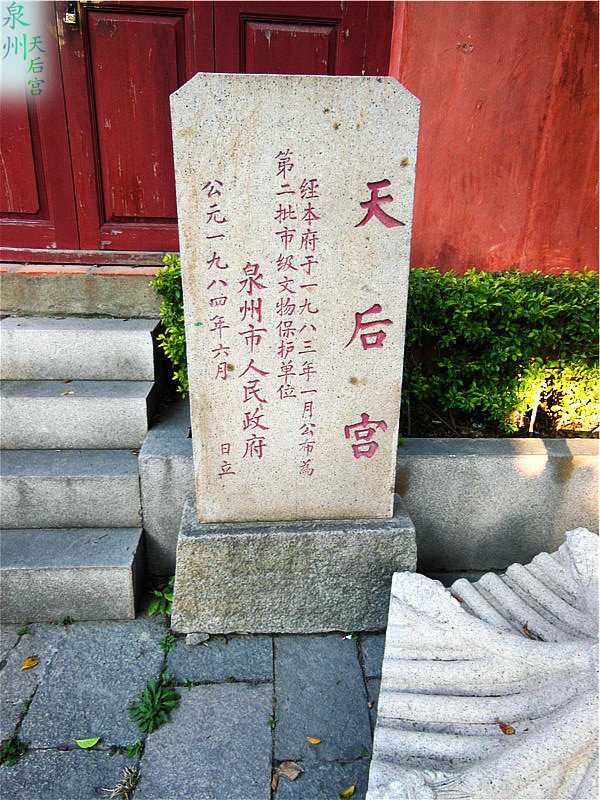 泉州
天后宫
天后宫
经本府于一九八三年一月公布为
第二批市级文物保护单位
泉州市人民政府
公元一九八四年六月 日立